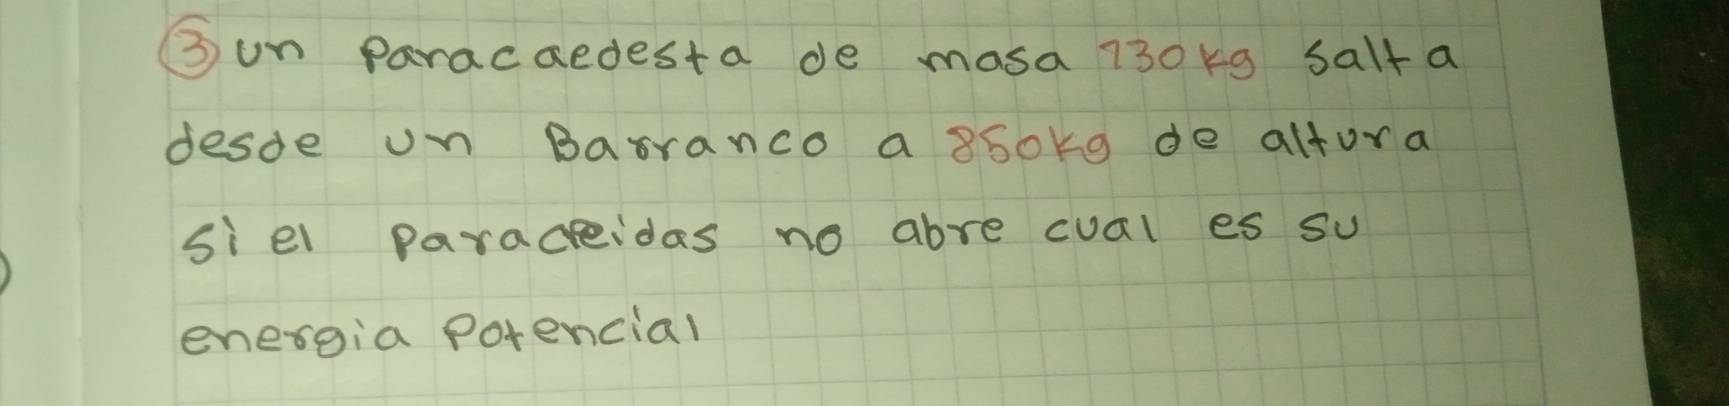 ③ un Paracaedesta de masa 130kg salta
desde un Barranco a 850kg de altura
si el paraceidas no abre cual es su
energia Potencial